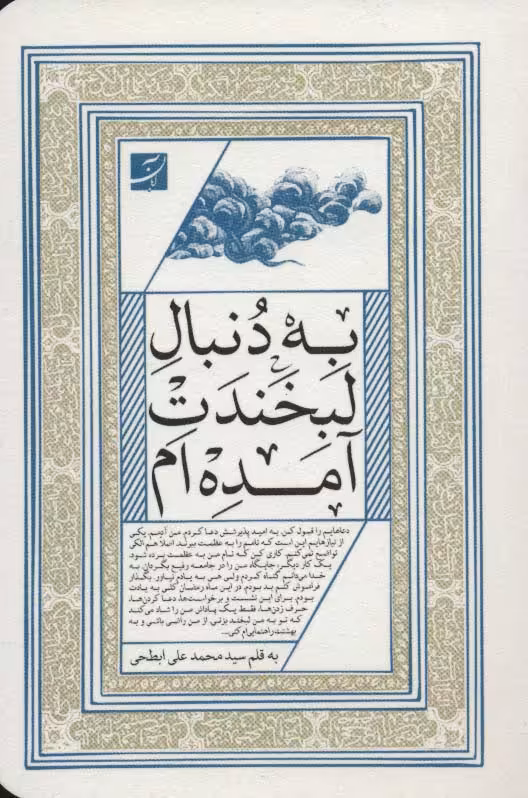 به دُنبالِ
لَبخَندَت
آمَدِه اَم
دعاهایم را قبول کن. به امید پذیرشش دعا کردم. من آدمم. یکی
از نیازهایم این است که نامم را به عظمت ببرند. اصلا هم الکی
تواضع نمی‌کنم. کاری کن که نام من به عظمت برده شود.
یک کار دیگر، جایگاه من را در جامعه رفیع بگردان. به
خدا می‌دانم گناه کردم ولی هی به یادم نیاور. بگذار
فراموش کنم بد بودم. در این ماه رمضان کلی به یادت
بودم. برای این نشست و برخاست‌ها، دعا کردن‌ها،
حرف زدن‌ها، فقط یک پاداش من را شاد می‌کند
که تو به من لبخند بزنی. از من راضی باشی و به
بهشتت راهنمایی‌ام کنی...
به قلم سید محمد علی ابطحی